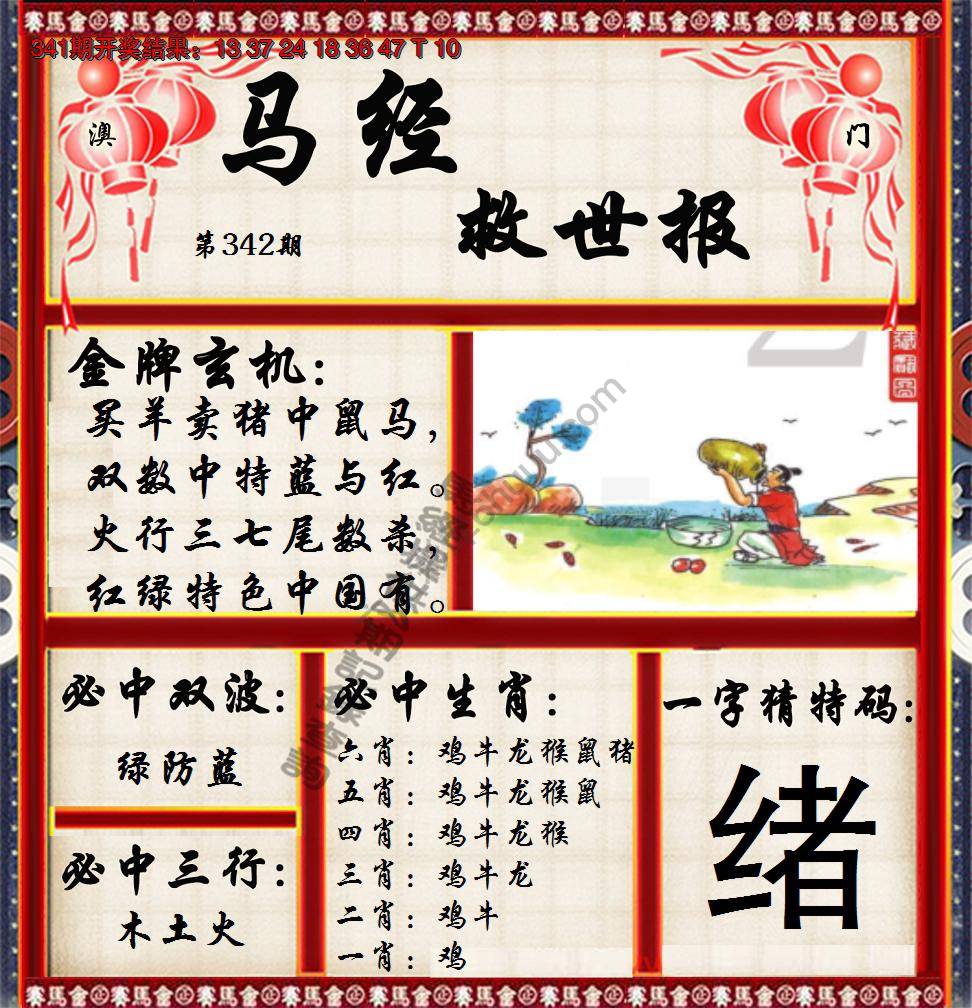 赛馬會 赛馬會 赛馬會 赛馬會 赛馬會 赛馬會 赛馬會 赛馬會
341期开奖结果：13 37 24 18 36 47 T 10
澳
门
马经
救世报
第342期
金牌玄机：
买羊卖猪中鼠马，
双数中特蓝与红。
火行三七尾数杀，
红绿特色中国有。
必中双波：
绿防蓝
必中三行：
木土火
必中生肖：
六肖：鸡牛龙猴鼠猪
五肖：鸡牛龙猴鼠
四肖：鸡牛龙猴
三肖：鸡牛龙
二肖：鸡牛
一肖：鸡
一字猜特码：
绪